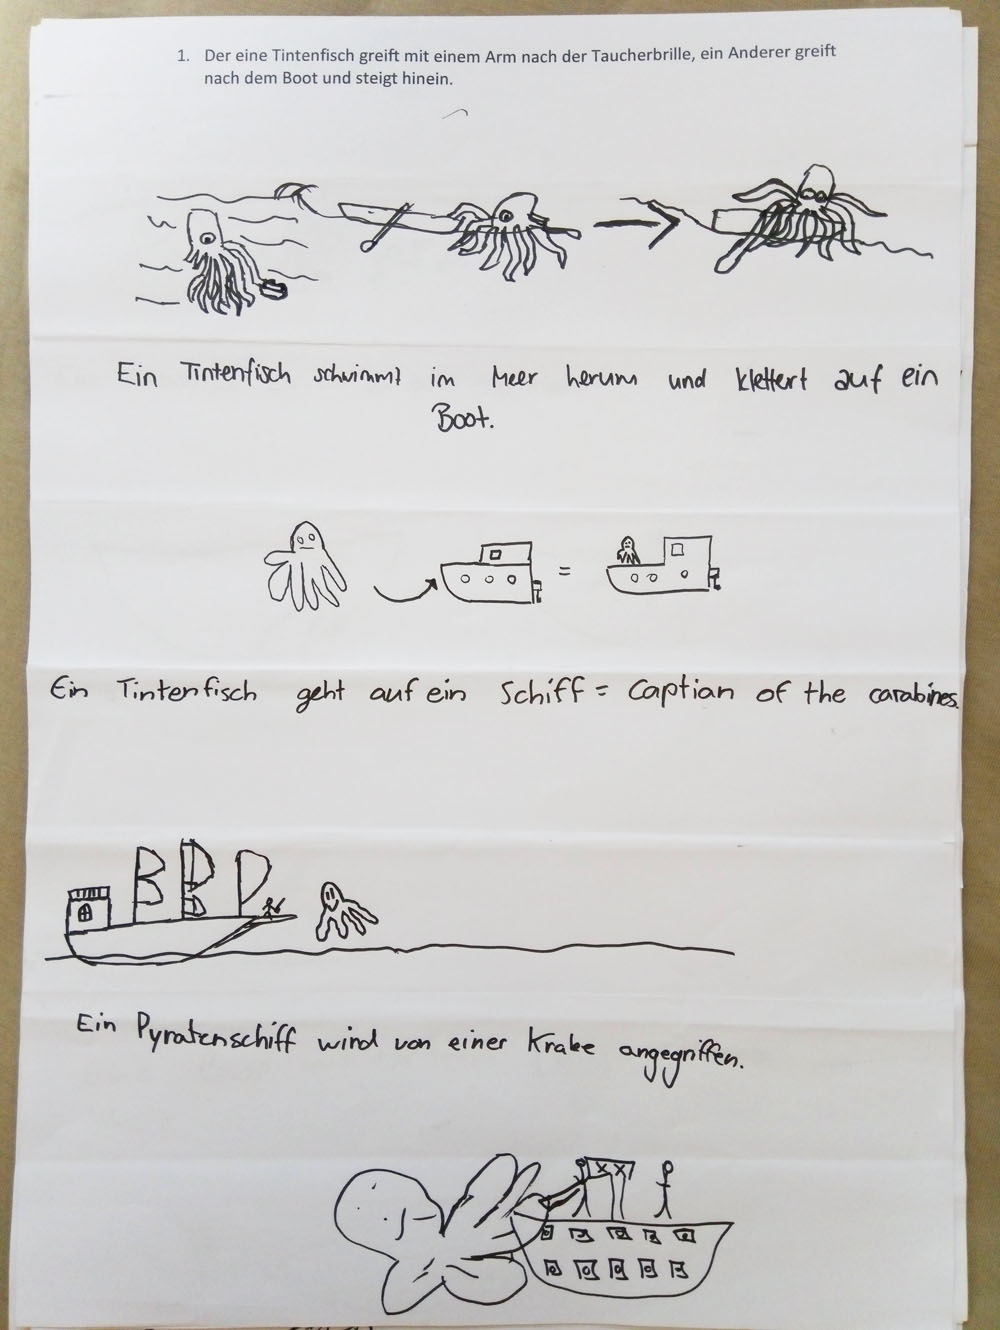 1. Der eine Tintenfisch greift mit einem Arm nach der Taucherbrille, ein Anderer greift
nach dem Boot und steigt hinein.
Ein Tintenfisch schwimmt im Meer herum und klettert auf ein
Boot.
=
Ein Tintenfisch geht auf ein Schiff = Captian of the carabines.
Ein Pyratenschiff wird von einer Krake angegriffen.